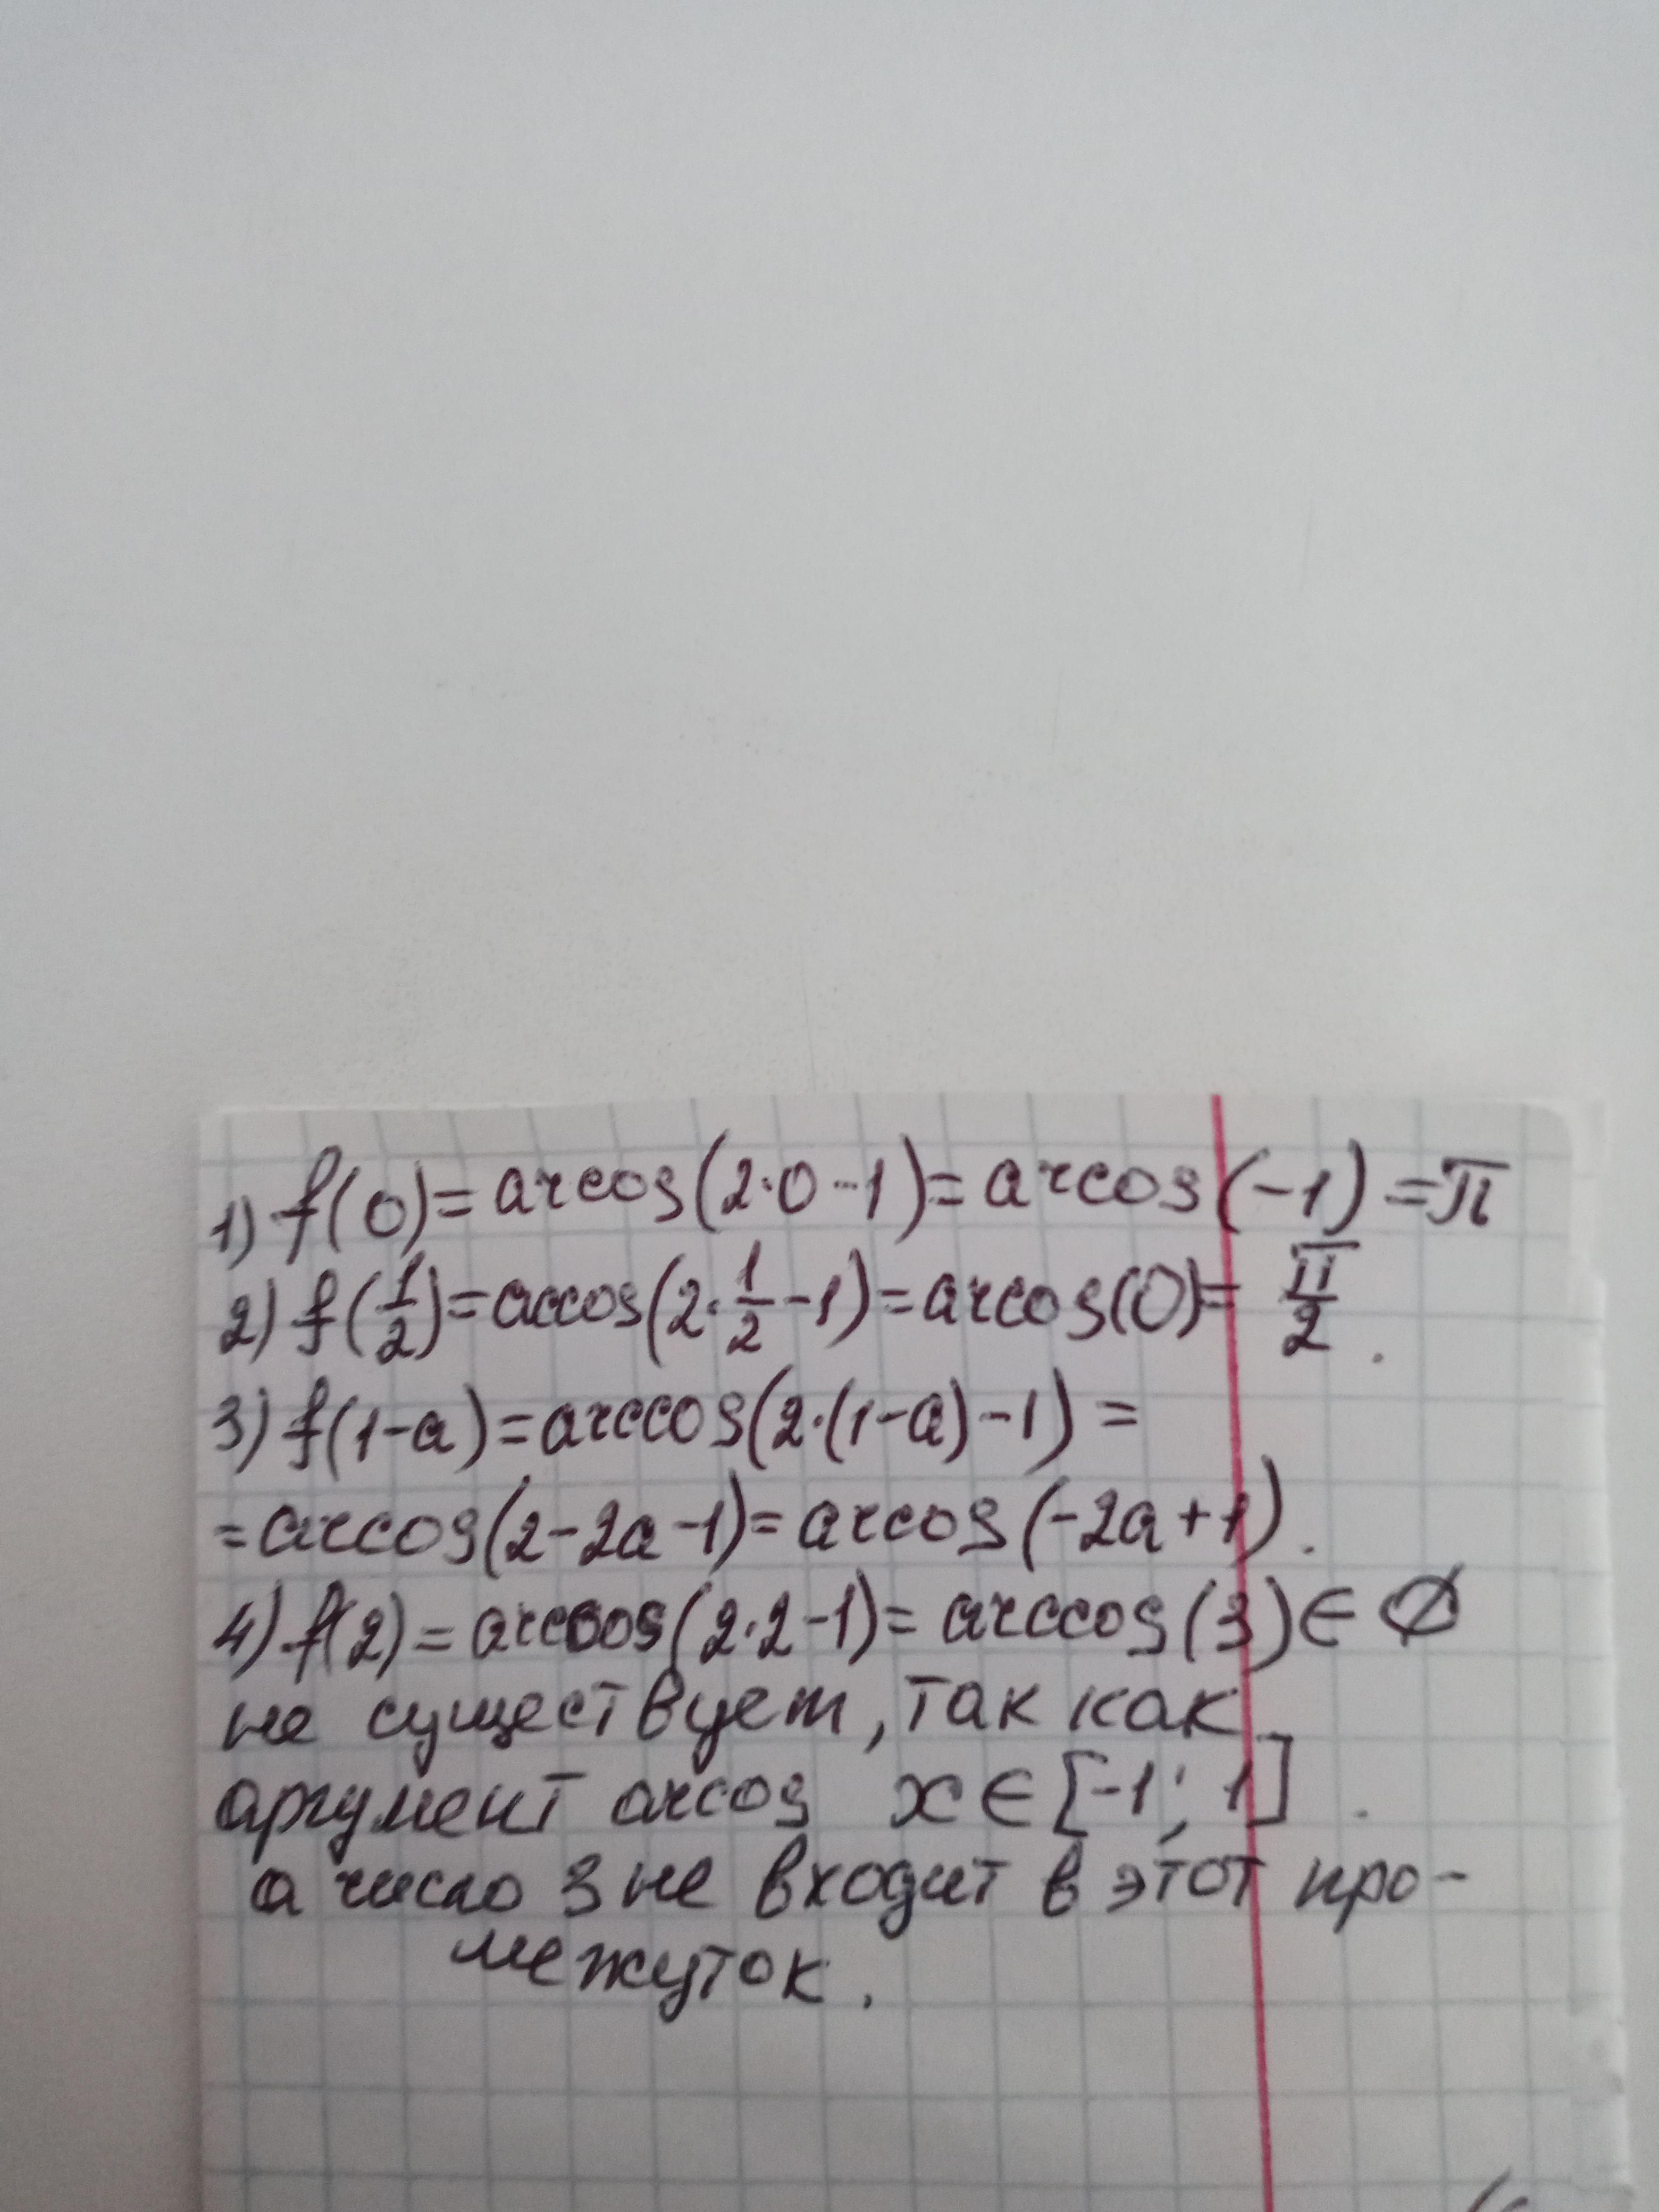 1) f(0)=arcos(2·0-1)=arcos(-1)=π
2) f(1/2)=arccos(2·1/2-1)=arcos(0)=π/2.
3) f(1-a)=arccos(2·(1-a)-1)=
=arcos(2-2a-1)=arcos(-2a+1).
4) f(2)=arccos(2·2-1)=arccos(3)∈∅
не существует, так как
аргумент arcos x∈[-1; 1].
а число 3 не входит в этот про-
межуток.